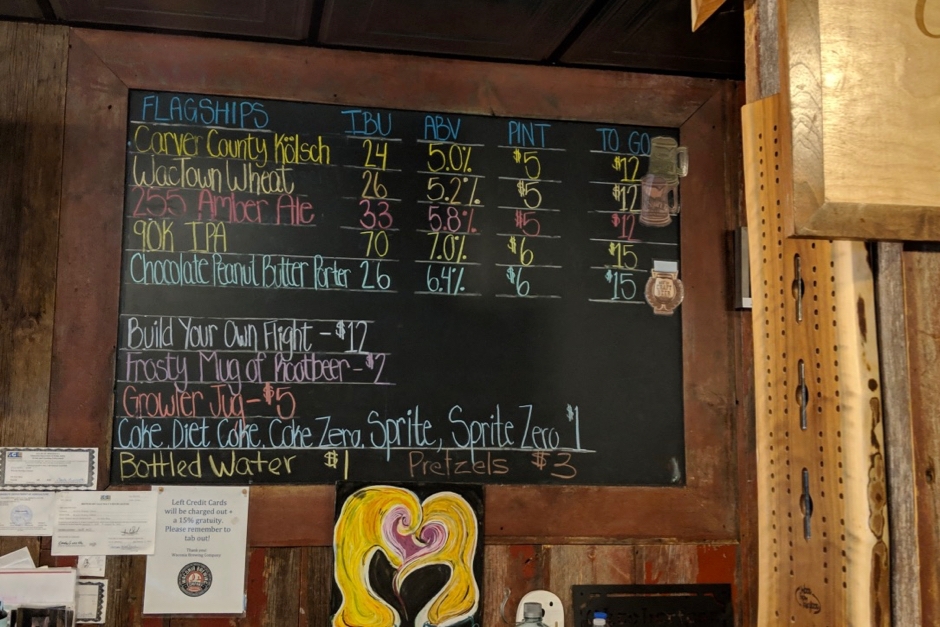 FLAGSHIPS IBU ABV PINT TO GO
Carver County Kölsch 24 5.0% $5 $12
WacTown Wheat 26 5.2% $5 $12
255 Amber Ale 33 5.8% $5 $12
90K IPA 70 7.0% $6 $15
Chocolate Peanut Butter Porter 26 6.4% $6 $15
Build Your Own Flight - $12
Frosty Mug of Rootbeer - $2
Growler Jug - $5
Coke, Diet Coke, Coke Zero, Sprite, Sprite Zero $1
Bottled Water $1 Pretzels $3
Left Credit Cards
will be charged out +
a 15% gratuity.
Please remember to
tab out!
Thank you!
Waconia Brewing Company